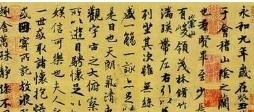 永和九年歲
會稽山陰之蘭
也羣賢畢至少
有崇山峻領茂林脩
湍暎帶左右
列坐其次雖無
盛一觴一詠亦
是日也天朗氣清
觀宇宙之大俯察
所以遊目騁懷
娛信可樂也夫
一世或取諸懷抱
或因寄所託放
萬殊靜躁不